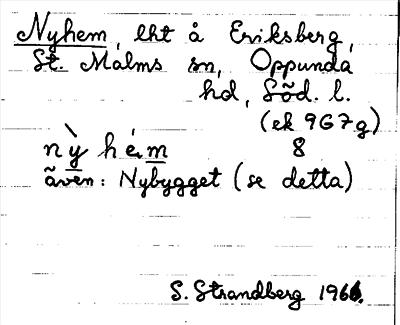 Nyhem, lht å Eriksberg,
St. Malms sn, Oppunda
hd, Söd. l.
(ek 9G7g)
nỳ hém 8
även: Nybygget (se detta)
S. Strandberg 1966.